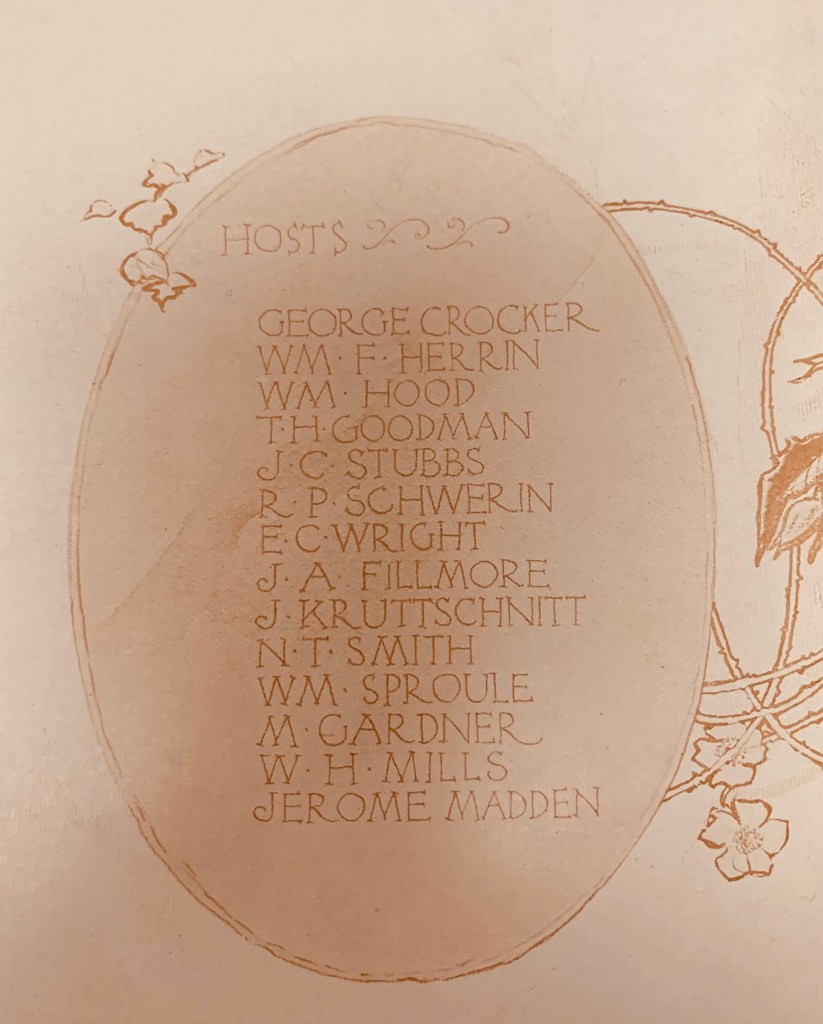 HOSTS
GEORGE CROCKER
WM · F · HERRIN
WM · HOOD
T·H·GOODMAN
J·C·STUBBS
R·P·SCHWERIN
E·C·WRIGHT
J·A·FILLMORE
J·KRUTTSCHNITT
N·T·SMITH
WM·SPROULE
M·GARDNER
W·H·MILLS
JEROME MADDEN